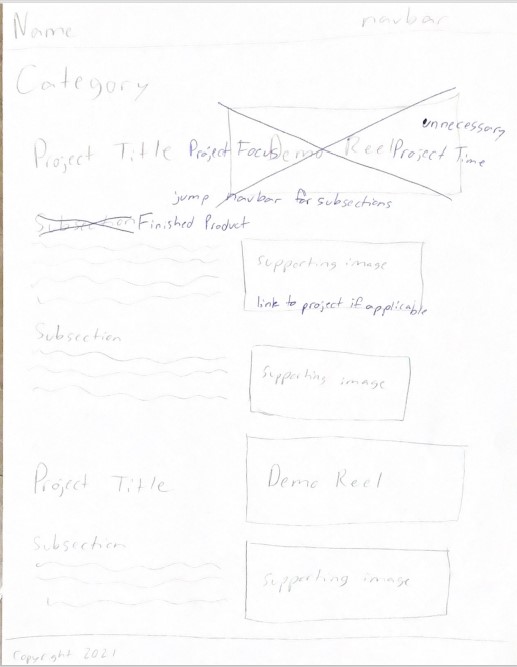 Name navbar
Category
unnecessary
Project Title Project Focus Demo Reel Project Time
jump navbar for subsections
Subsection Finished Product
Supporting image
link to project if applicable
Subsection
Supporting image
Project Title Demo Reel
Subsection
Supporting image
Copyright 2021